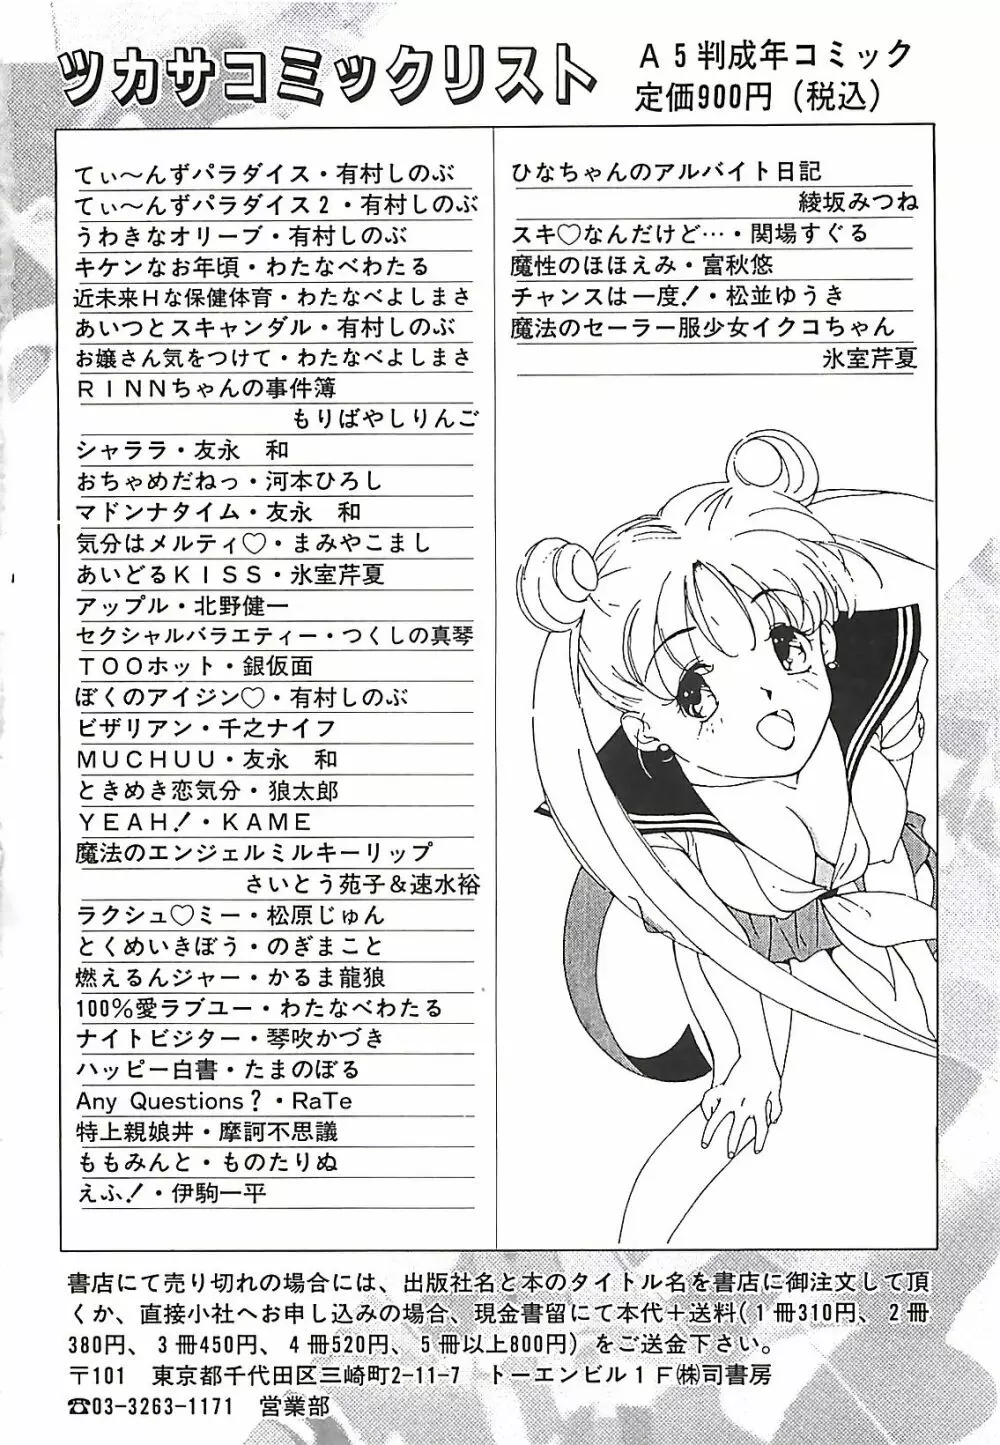 ツカサコミックリスト
A5判成年コミック
定価900円（税込）
てぃ～んずパラダイス・有村しのぶ
てぃ～んずパラダイス2・有村しのぶ
うわきなオリーブ・有村しのぶ
キケンなお年頃・わたなべわたる
近未来Hな保健体育・わたなべよしまさ
あいつとスキャンダル・有村しのぶ
お嬢さん気をつけて・わたなべよしまさ
RINNちゃんの事件簿
もりばやしりんご
シャララ・友永　和
おちゃめだねっ・河本ひろし
マドンナタイム・友永　和
気分はメルティ♡・まみやこまし
あいどるKISS・氷室芹夏
アップル・北野健一
セクシャルバラエティー・つくしの真琴
TOOホット・銀仮面
ぼくのアイジン♡・有村しのぶ
ビザリアン・千之ナイフ
MUCHUU・友永　和
ときめき恋気分・狼太郎
YEAH!・KAME
魔法のエンジェルミルキーリップ
さいとう苑子&速水裕
ラクシュ♡ミー・松原じゅん
とくめいきぼう・のぎまこと
燃えるんジャー・かるま龍狼
100%愛ラブユー・わたなべわたる
ナイトビジター・琴吹かづき
ハッピー白書・たまのぼる
Any Questions?・RaTe
特上親娘丼・摩訶不思議
ももみんと・ものたりぬ
えふ!・伊駒一平
ひなちゃんのアルバイト日記
綾坂みつね
スキ♡なんだけど…・関場すぐる
魔性のほほえみ・富秋悠
チャンスは一度!・松並ゆうき
魔法のセーラー服少女イクコちゃん
氷室芹夏
書店にて売り切れの場合には、出版社名と本のタイトル名を書店に御注文して頂
くか、直接小社へお申し込みの場合、現金書留にて本代+送料(1冊310円、2冊
380円、3冊450円、4冊520円、5冊以上800円)をご送金下さい。
〒101　東京都千代田区三崎町2-11-7　トーエンビル1F㈱司書房
☎03-3263-1171　営業部